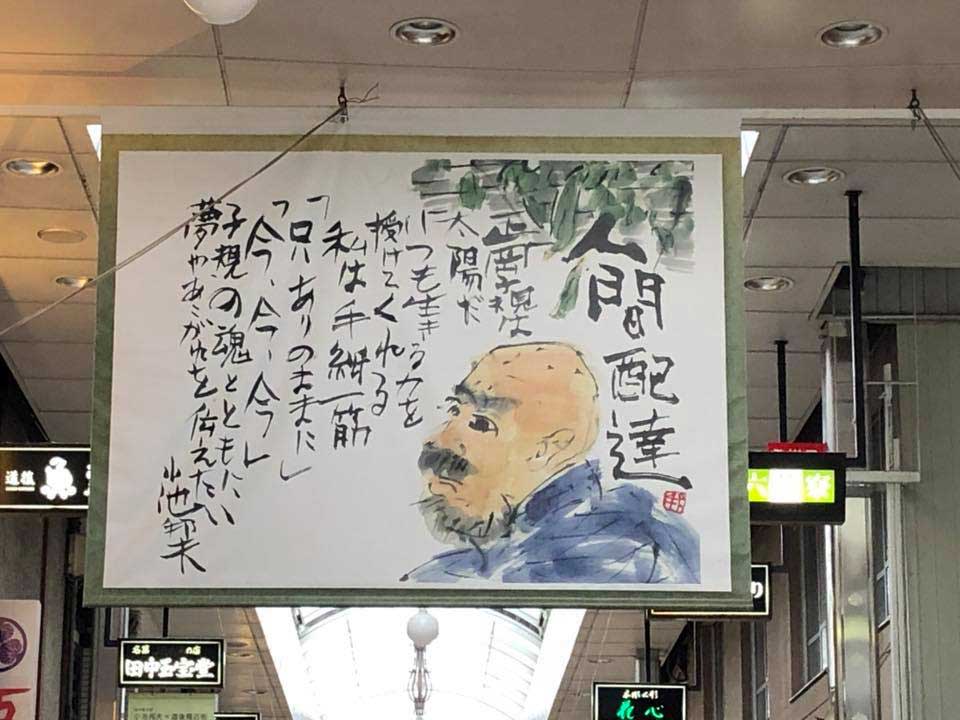 人間配達
正岡子規は
太陽だ
いつも生きる力を
授けてくれる
私は手紙一筋
「只ありのままに」
「今、今、今」
子規の魂とともに
夢やあこがれを伝えたい
小池邦夫
邦
道後
魚
六
寮
り
名菓 の店
田中玉宝堂
花心
5